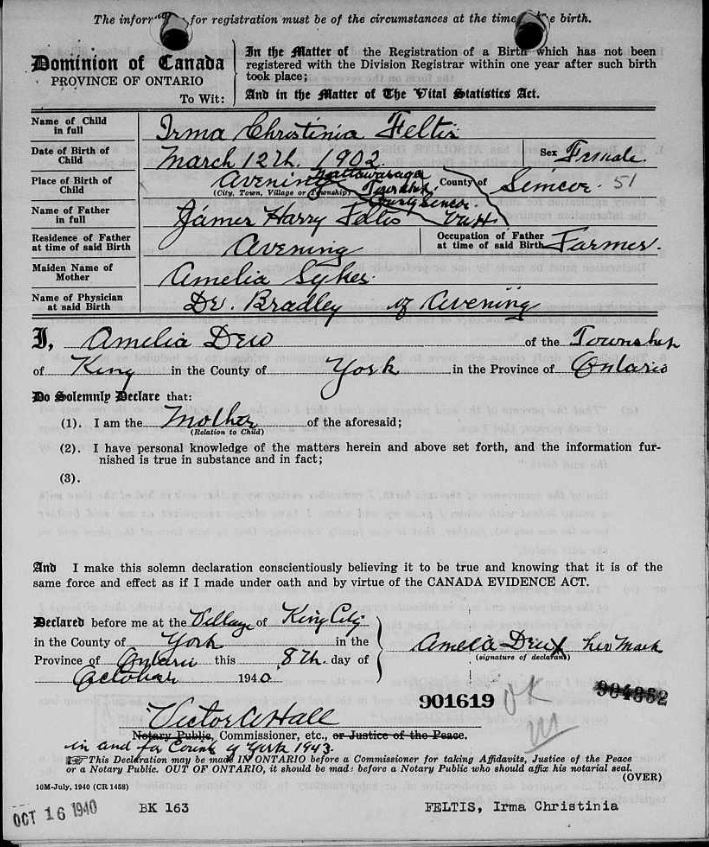 The information for registration must be of the circumstances at the time of the birth.
Dominion of Canada
PROVINCE OF ONTARIO
To Wit:
In the Matter of the Registration of a Birth which has not been
registered with the Division Registrar within one year after such birth
took place;
And in the Matter of The Vital Statistics Act.
Name of Child in full Irma Christinia Feltis
Date of Birth of Child March 12th. 1902 Sex Female
Place of Birth of Child Avening Nottawasaga Township County of Simcoe. 51
(City, Town, Village or Township)
Simcoe.
Name of Father in full James Harry Feltis
Residence of Father at time of said Birth Avening Occupation of Father at time of said Birth Farmer.
Maiden Name of Mother Amelia Sykes.
Name of Physician at said Birth Dr. Bradley of Avening
I, Amelia Dew of the Township
of King in the County of York in the Province of Ontario
Do Solemnly Declare that:
(1). I am the Mother of the aforesaid;
(Relation to Child)
(2). I have personal knowledge of the matters herein and above set forth, and the information fur-
nished is true in substance and in fact;
(3).
And I make this solemn declaration conscientiously believing it to be true and knowing that it is of the
same force and effect as if I made under oath and by virtue of the CANADA EVIDENCE ACT.
Declared before me at the Village of King City
in the County of York in the
Province of Ontario this 8th. day of
October 1940
Amelia Dew X her Mark
(signature of declarant)
901619 OK
904352
Victor A Hall
Notary Public, Commissioner, etc., or Justice of the Peace.
in and for County of York 1943.
☞ This Declaration may be made IN ONTARIO before a Commissioner for taking Affidavits, Justice of the Peace
or a Notary Public. OUT OF ONTARIO, it should be made before a Notary Public who should affix his notarial seal.
(OVER)
10M-July, 1940 (CR 1458)
OCT 16 1940
BK 163
FELTIS, Irma Christinia